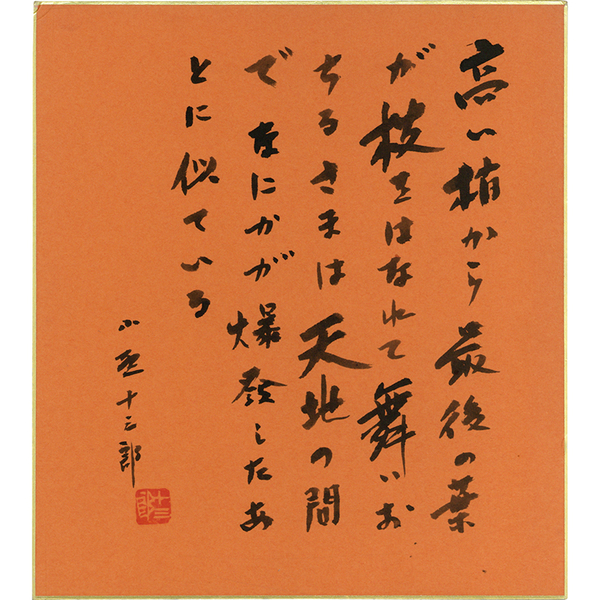 高い梢から最後の葉
が枝をはなれて舞いお
ちるさまは天地の間
でなにかが爆発したあ
とに似ている
小野十三郎
十三郎